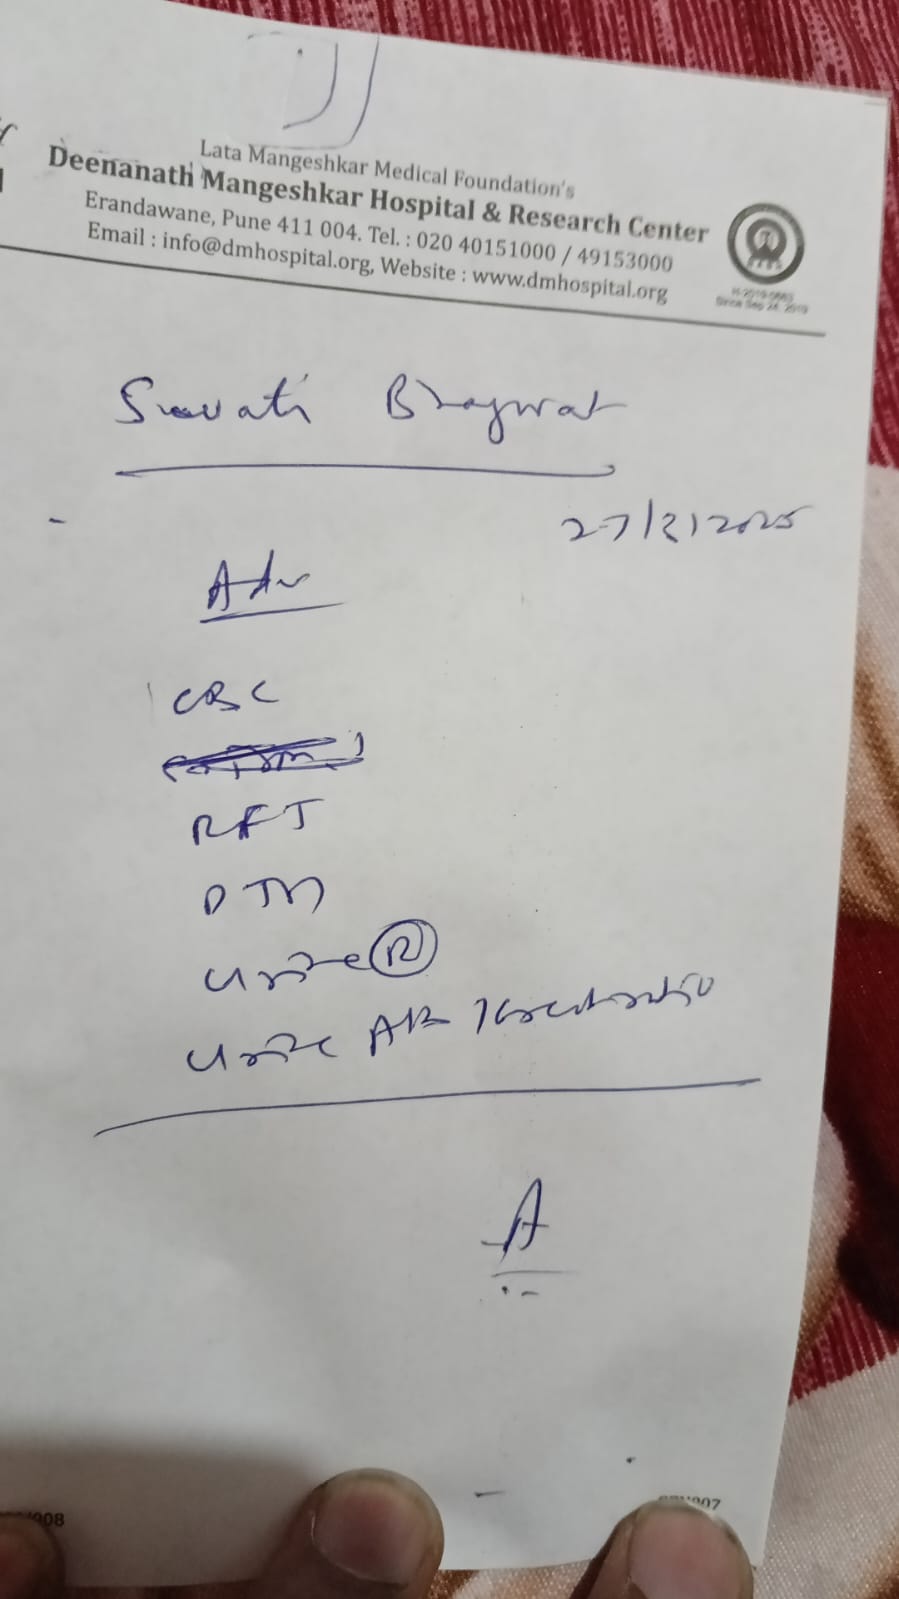 Lata Mangeshkar Medical Foundation's
Deenanath Mangeshkar Hospital & Research Center
Erandawane, Pune 411 004. Tel. : 020 40151000 / 49153000
Email : info@dmhospital.org, Website : www.dmhospital.org
H-2019-0663
Since Sep 24, 2019
Bhagwat
27/2/2025
Adv
CBC
RFT
Urine R
Urine
A
008
007